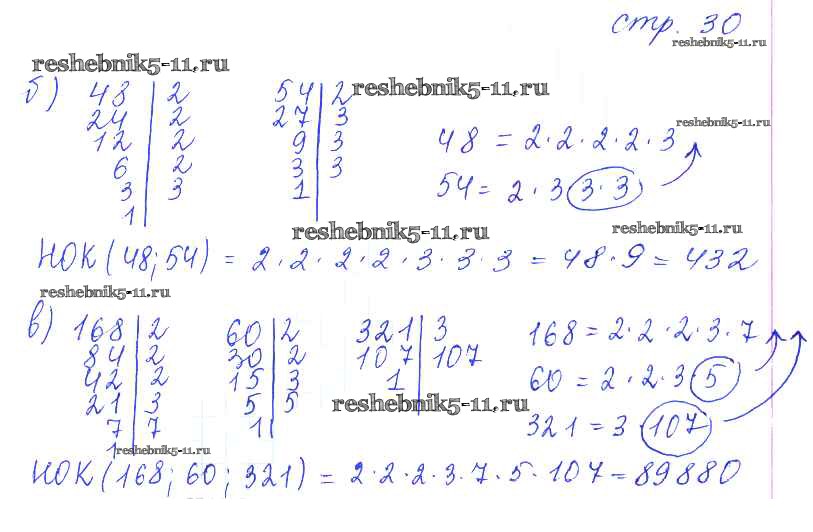 стр. 30
reshebnik5-11.ru
reshebnik5-11.ru
б) 48 | 2 54 | 2 reshebnik5-11.ru
24 | 2 27 | 3 reshebnik5-11.ru
12 | 2 9 | 3 48 = 2·2·2·2·3
6 | 2 3 | 3
3 | 3 1 54 = 2·3 3·3
1
reshebnik5-11.ru reshebnik5-11.ru
НОК (48; 54) = 2·2·2·2·3·3·3 = 48·9 = 432
reshebnik5-11.ru
в) 168 | 2 60 | 2 321 | 3 168 = 2·2·2·3·7
84 | 2 30 | 2 107 | 107
42 | 2 15 | 3 1 60 = 2·2·3 5
21 | 3 5 | 5 reshebnik5-11.ru
7 | 7 1 321 = 3·107
1 reshebnik5-11.ru
НОК (168; 60; 321) = 2·2·2·3·7·5·107 = 89880